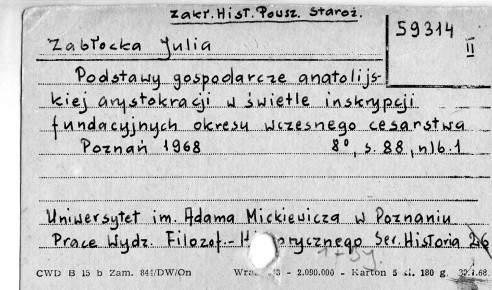 Zakł. Hist. Powsz. Staroż.
59314
II
Zabłocka Julia
Podstawy gospodarcze anatolijs-
kiej arystokracji w świetle inskrypcji
fundacyjnych okresu wczesnego cesarstwa
Poznań 1968 8°, s. 88, nlb. 1
Uniwersytet im. Adama Mickiewicza w Poznaniu
Prace Wydz. Filozof.- Historycznego Ser. Historia 26
CWD B 15 b Zam. 844/DW/On - 2.090.000 - Karton 5 kl. 180 g.